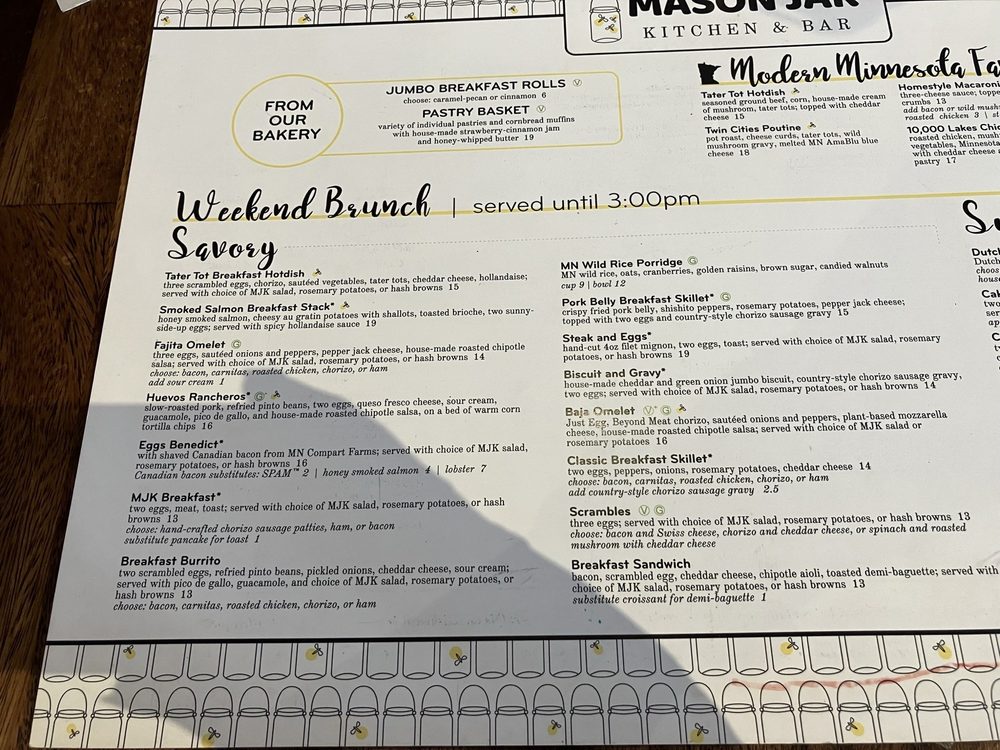 MASON JAR
KITCHEN & BAR
FROM
OUR
BAKERY
JUMBO BREAKFAST ROLLS Ⓥ
choose: caramel-pecan or cinnamon 6
PASTRY BASKET Ⓥ
variety of individual pastries and cornbread muffins
with house-made strawberry-cinnamon jam
and honey-whipped butter 19
Modern Minnesota
Tater Tot Hotdish
seasoned ground beef, corn, house-made cream
of mushroom, tater tots; topped with cheddar
cheese 15
Twin Cities Poutine
pot roast, cheese curds, tater tots, wild
mushroom gravy, melted MN AmaBlu blue
cheese 18
Homestyle
three-cheese sauce;
crumbs 13
add bacon or wild
roasted chicken 3 |
10,000 Lakes
roasted chicken,
vegetables,
with cheddar cheese
pastry 17
Weekend Brunch | served until 3:00pm
Savory
Tater Tot Breakfast Hotdish
three scrambled eggs, chorizo, sautéed vegetables, tater tots, cheddar cheese, hollandaise;
served with choice of MJK salad, rosemary potatoes, or hash browns 15
Smoked Salmon Breakfast Stack*
honey smoked salmon, cheesy au gratin potatoes with shallots, toasted brioche, two sunny-
side-up eggs; served with spicy hollandaise sauce 19
Fajita Omelet Ⓖ
three eggs, sautéed onions and peppers, pepper jack cheese, house-made roasted chipotle
salsa; served with choice of MJK salad, rosemary potatoes, or hash browns 14
choose: bacon, carnitas, roasted chicken, chorizo, or ham
add sour cream 1
Huevos Rancheros* Ⓖ
slow-roasted pork, refried pinto beans, two eggs, queso fresco cheese, sour cream,
guacamole, pico de gallo, and house-made roasted chipotle salsa, on a bed of warm corn
tortilla chips 16
Eggs Benedict*
with shaved Canadian bacon from MN Compart Farms; served with choice of MJK salad,
rosemary potatoes, or hash browns 16
Canadian bacon substitutes: SPAM™ 2 | honey smoked salmon 4 | lobster 7
MJK Breakfast*
two eggs, meat, toast; served with choice of MJK salad, rosemary potatoes, or hash
browns 13
choose: hand-crafted chorizo sausage patties, ham, or bacon
substitute pancake for toast 1
Breakfast Burrito
two scrambled eggs, refried pinto beans, pickled onions, cheddar cheese, sour cream;
served with pico de gallo, guacamole, and choice of MJK salad, rosemary potatoes, or
hash browns 13
choose: bacon, carnitas, roasted chicken, chorizo, or ham
MN Wild Rice Porridge Ⓖ
MN wild rice, oats, cranberries, golden raisins, brown sugar, candied walnuts
cup 9 | bowl 12
Pork Belly Breakfast Skillet* Ⓖ
crispy fried pork belly, shishito peppers, rosemary potatoes, pepper jack cheese;
topped with two eggs and country-style chorizo sausage gravy 15
Steak and Eggs*
hand-cut 4oz filet mignon, two eggs, toast; served with choice of MJK salad, rosemary
potatoes, or hash browns 19
Biscuit and Gravy*
house-made cheddar and green onion jumbo biscuit, country-style chorizo sausage gravy,
two eggs; served with choice of MJK salad, rosemary potatoes, or hash browns 14
Baja Omelet Ⓥ⁺ Ⓖ
Just Egg, Beyond Meat chorizo, sautéed onions and peppers, plant-based mozzarella
cheese, house-made roasted chipotle salsa; served with choice of MJK salad or
rosemary potatoes 16
Classic Breakfast Skillet*
two eggs, peppers, onions, rosemary potatoes, cheddar cheese 14
choose: bacon, carnitas, roasted chicken, chorizo, or ham
add country-style chorizo sausage gravy 2.5
Scrambles Ⓥ Ⓖ
three eggs; served with choice of MJK salad, rosemary potatoes, or hash browns 13
choose: bacon and Swiss cheese, chorizo and cheddar cheese, or spinach and roasted
mushroom with cheddar cheese
Breakfast Sandwich
bacon, scrambled egg, cheddar cheese, chipotle aioli, toasted demi-baguette; served with
choice of MJK salad, rosemary potatoes, or hash browns 13
substitute croissant for demi-baguette 1